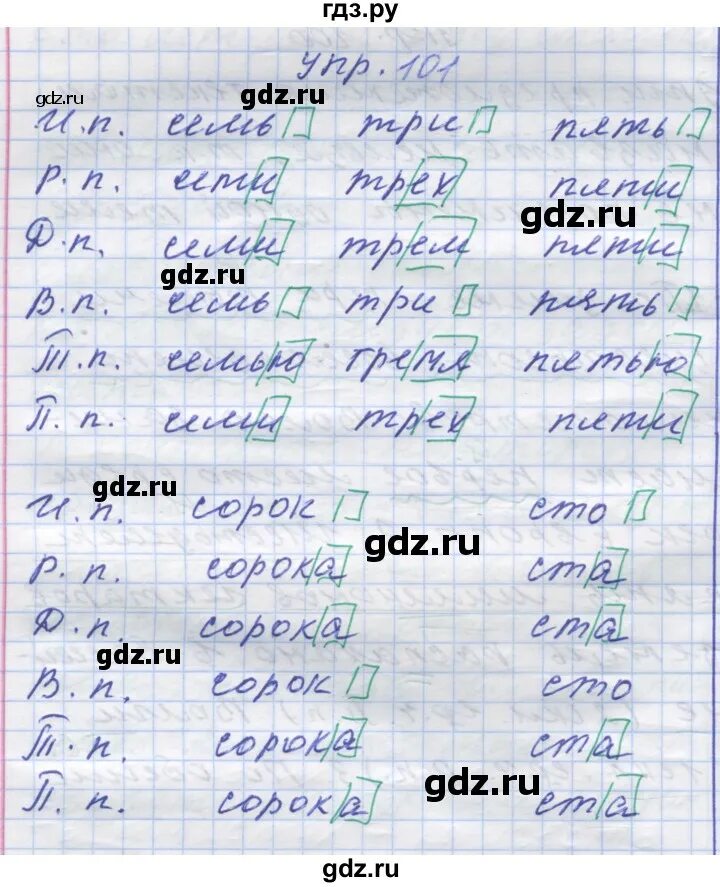 гдз.ру
упр. 101
gdz.ru
gdz.ru
И.п. семь три пять
Р.п. семи трех пяти
gdz.ru
Д.п. семи трем пяти
gdz.ru
В.п. семь три пять
Т.п. семью тремя пятью
П.п. семи трех пяти
gdz.ru
gdz.ru
И.п. сорок сто
gdz.ru
Р.п. сорока ста
Д.п. сорока ста
gdz.ru
В.п. сорок сто
Т.п. сорока ста
gdz.ru
П.п. сорока ста
gdz.ru